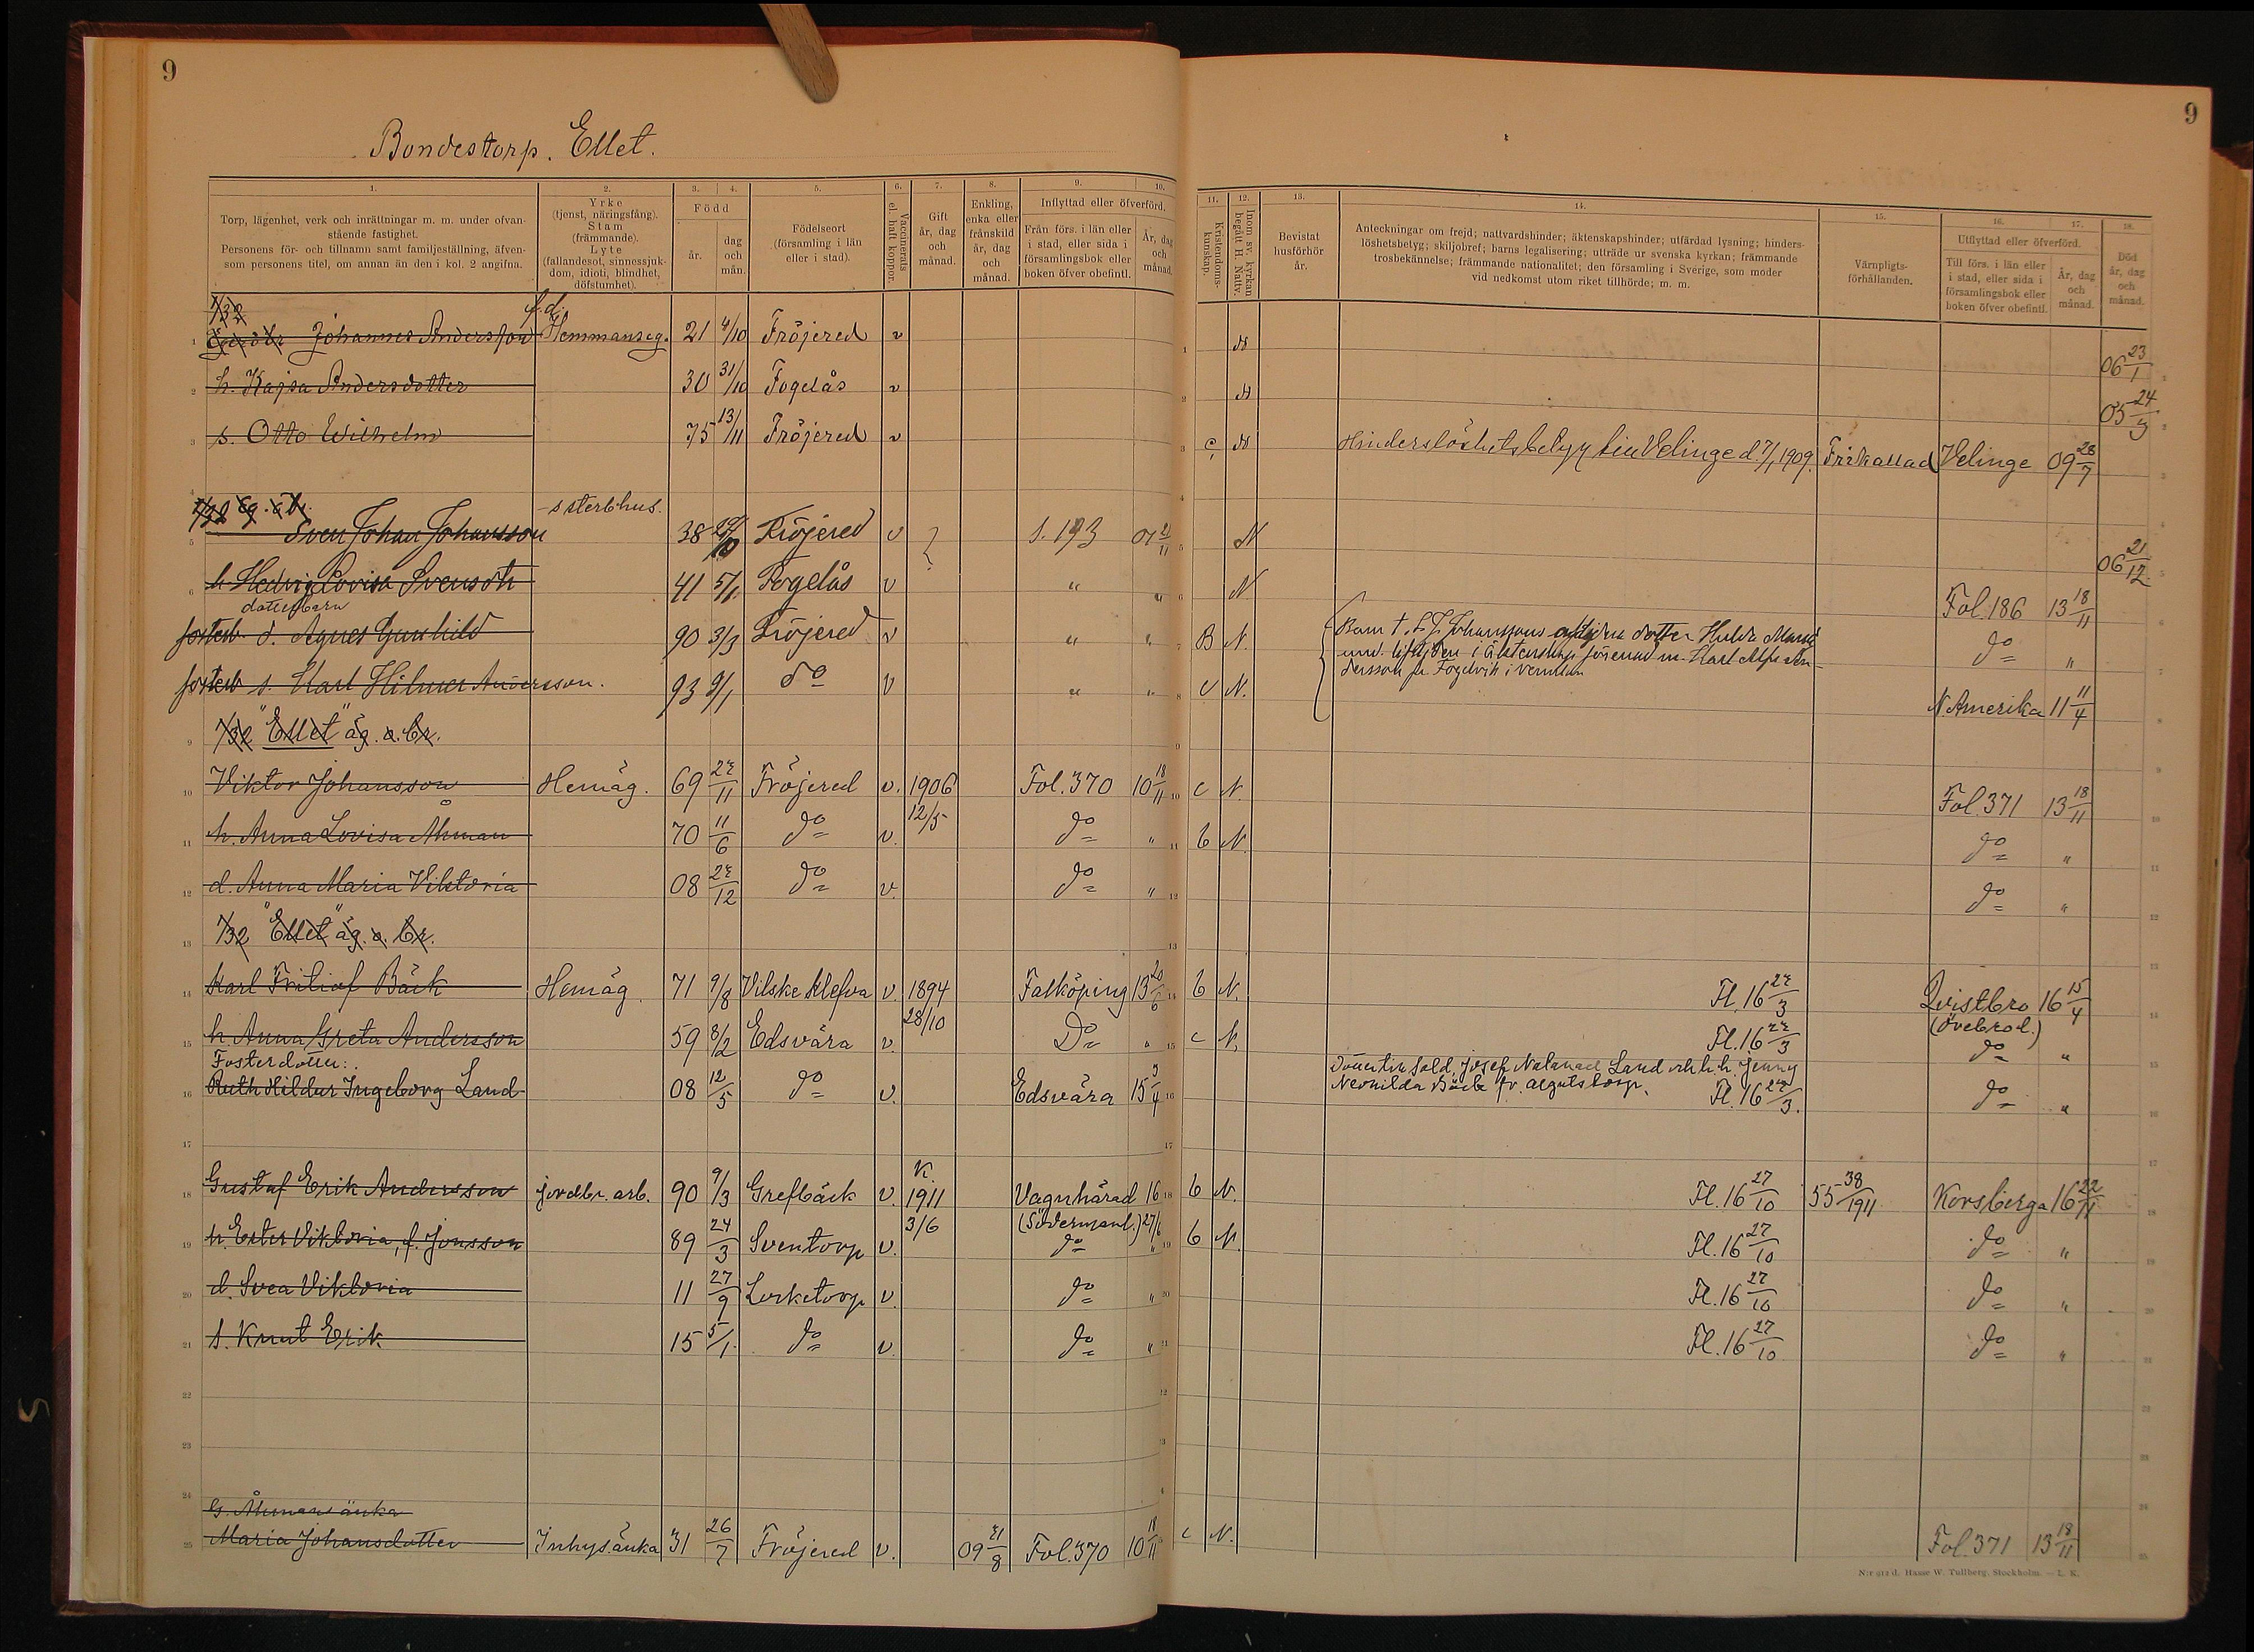 9
9
Bondestorp. Ellet.
1. 2. 3. 4. 5. 6. 7. 8. 9. 10. 11. 12. 13. 14. 15. 16. 17. 18.
Torp, lägenhet, verk och inrättningar m. m. under ofvanstående fastighet.
Personens för- och tillnamn samt familjeställning, äfvensom personens titel, om annan än den i kol. 2 angifna.
Yrke (tjenst, näringsfång). Stam (främmande). Lyte (fallandesot, sinnessjukdom, idioti, blindhet, döfstumhet).
Född
år.
dag och mån.
Födelseort (församling i län eller i stad).
Vaccinerats el. haft koppor.
Gift år, dag och månad.
Enkling, enka eller frånskild år, dag och månad.
Inflyttad eller öfverförd.
Från förs. i län eller i stad, eller sida i församlingsbok eller boken öfver obefintl.
År, dag och månad.
Kristendomskunskap.
Inom sv. kyrkan begått H. Nattv.
Bevistat husförhör år.
Anteckningar om frejd; nattvardshinder; äktenskapshinder; utfärdad lysning; hinderslöshetsbetyg; skiljobref; barns legalisering; utträde ur svenska kyrkan; främmande trosbekännelse; främmande nationalitet; den församling i Sverige, som moder vid nedkomst utom riket tillhörde; m. m.
Värnpligtsförhållanden.
Utflyttad eller öfverförd.
Till förs. i län eller i stad, eller sida i församlingsbok eller boken öfver obefintl.
År, dag och månad.
Död år, dag och månad.
1/32 f.d.
1 Johannes Andersson Hemmanseg. 21 4/10 Fröjered v 06 23/1
2 h. Kajsa Andersdotter 30 31/10 Fogelås v 05 24/9
3 s. Otto Wilhelm 75 13/11 Fröjered v c Hinderslöshetsbetyg till Velinge d. 7/1 1909. Frikallad Velinge 09 28/7
1/32 Eg. o. br. -s sterbhus.
5 Sven Johan Johansson 38 Fröjered v s. 193 01 N 06 21/12
6 h. Hedvig Lovisa Svensdr 41 5/1 Fogelås v " " N Fol. 186 13 18/11
dotterbarn
fosterb. d. Agnes Gunhild 90 3/3 Fröjered v " " B N. Barn t. S. J. Johanssons dotter Hulda Maria do "
förenad m. Karl Alfr. Andersson
fosterb s. Karl Hilmer Andersson. 93 9/1 do v " " c N. N. Amerika 11 11/4
9 1/32 "Ellet" äg. o. br.
10 Viktor Johansson Hemäg. 69 22/11 Fröjered v. 1906 12/5 Fol. 370 10 18/11 c N. Fol. 371 13 18/11
11 h. Anna Lovisa Åhman 70 11/6 do v. do " b N. do "
12 d. Anna Maria Viktoria 08 22/12 do v. do " do "
13 1/32 "Ellet" äg. o. br.
14 Karl Fritiof Bäck Hemäg. 71 9/8 Vilske Klefva v. 1894 28/10 Falköping 13 20/6 b N. Fl. 16 22/3 Qvistbro (Örebro l.) 16 15/4
15 h. Anna Greta Andersson 59 8/2 Edsvära v. Do " c N. Fl. 16 22/3 do "
Fosterdotter:
16 Ruth Hildur Ingeborg Land 08 12/5 do v. Edsvära 15 3/4 Dotter till Sold. Josef Natanael Land och h. h. Jenny Neonilda Bäck fr. Algutstorp. Fl. 16 22/3. do "
17
18 Gustaf Erik Andersson jordbr. arb. 90 9/3 Grefbäck v. K. 1911 3/6 Vagnhärad (Södermanl.) 16 27/6 b N. Fl. 16 27/10 55 38/1911 Korsberga 16 22/11
19 h. Ester Viktoria, f. Jonsson 89 24/3 Sventorp v. do " b N. Fl. 16 27/10 do "
20 d. Svea Viktoria 11 27/9 Lerketorp v. do " Fl. 16 27/10 do "
21 s. Knut Erik 15 5/1. do v. do " Fl. 16 27/10 do "
22
23
24 G. Åhmans änka
25 Maria Johansdotter Inhysänka 31 26/7 Fröjered v. 09 21/8 Fol. 370 10 18/11 c N. Fol. 371 13 18/11
N:r 912 d. Hasse W. Tullberg, Stockholm. — L. K.